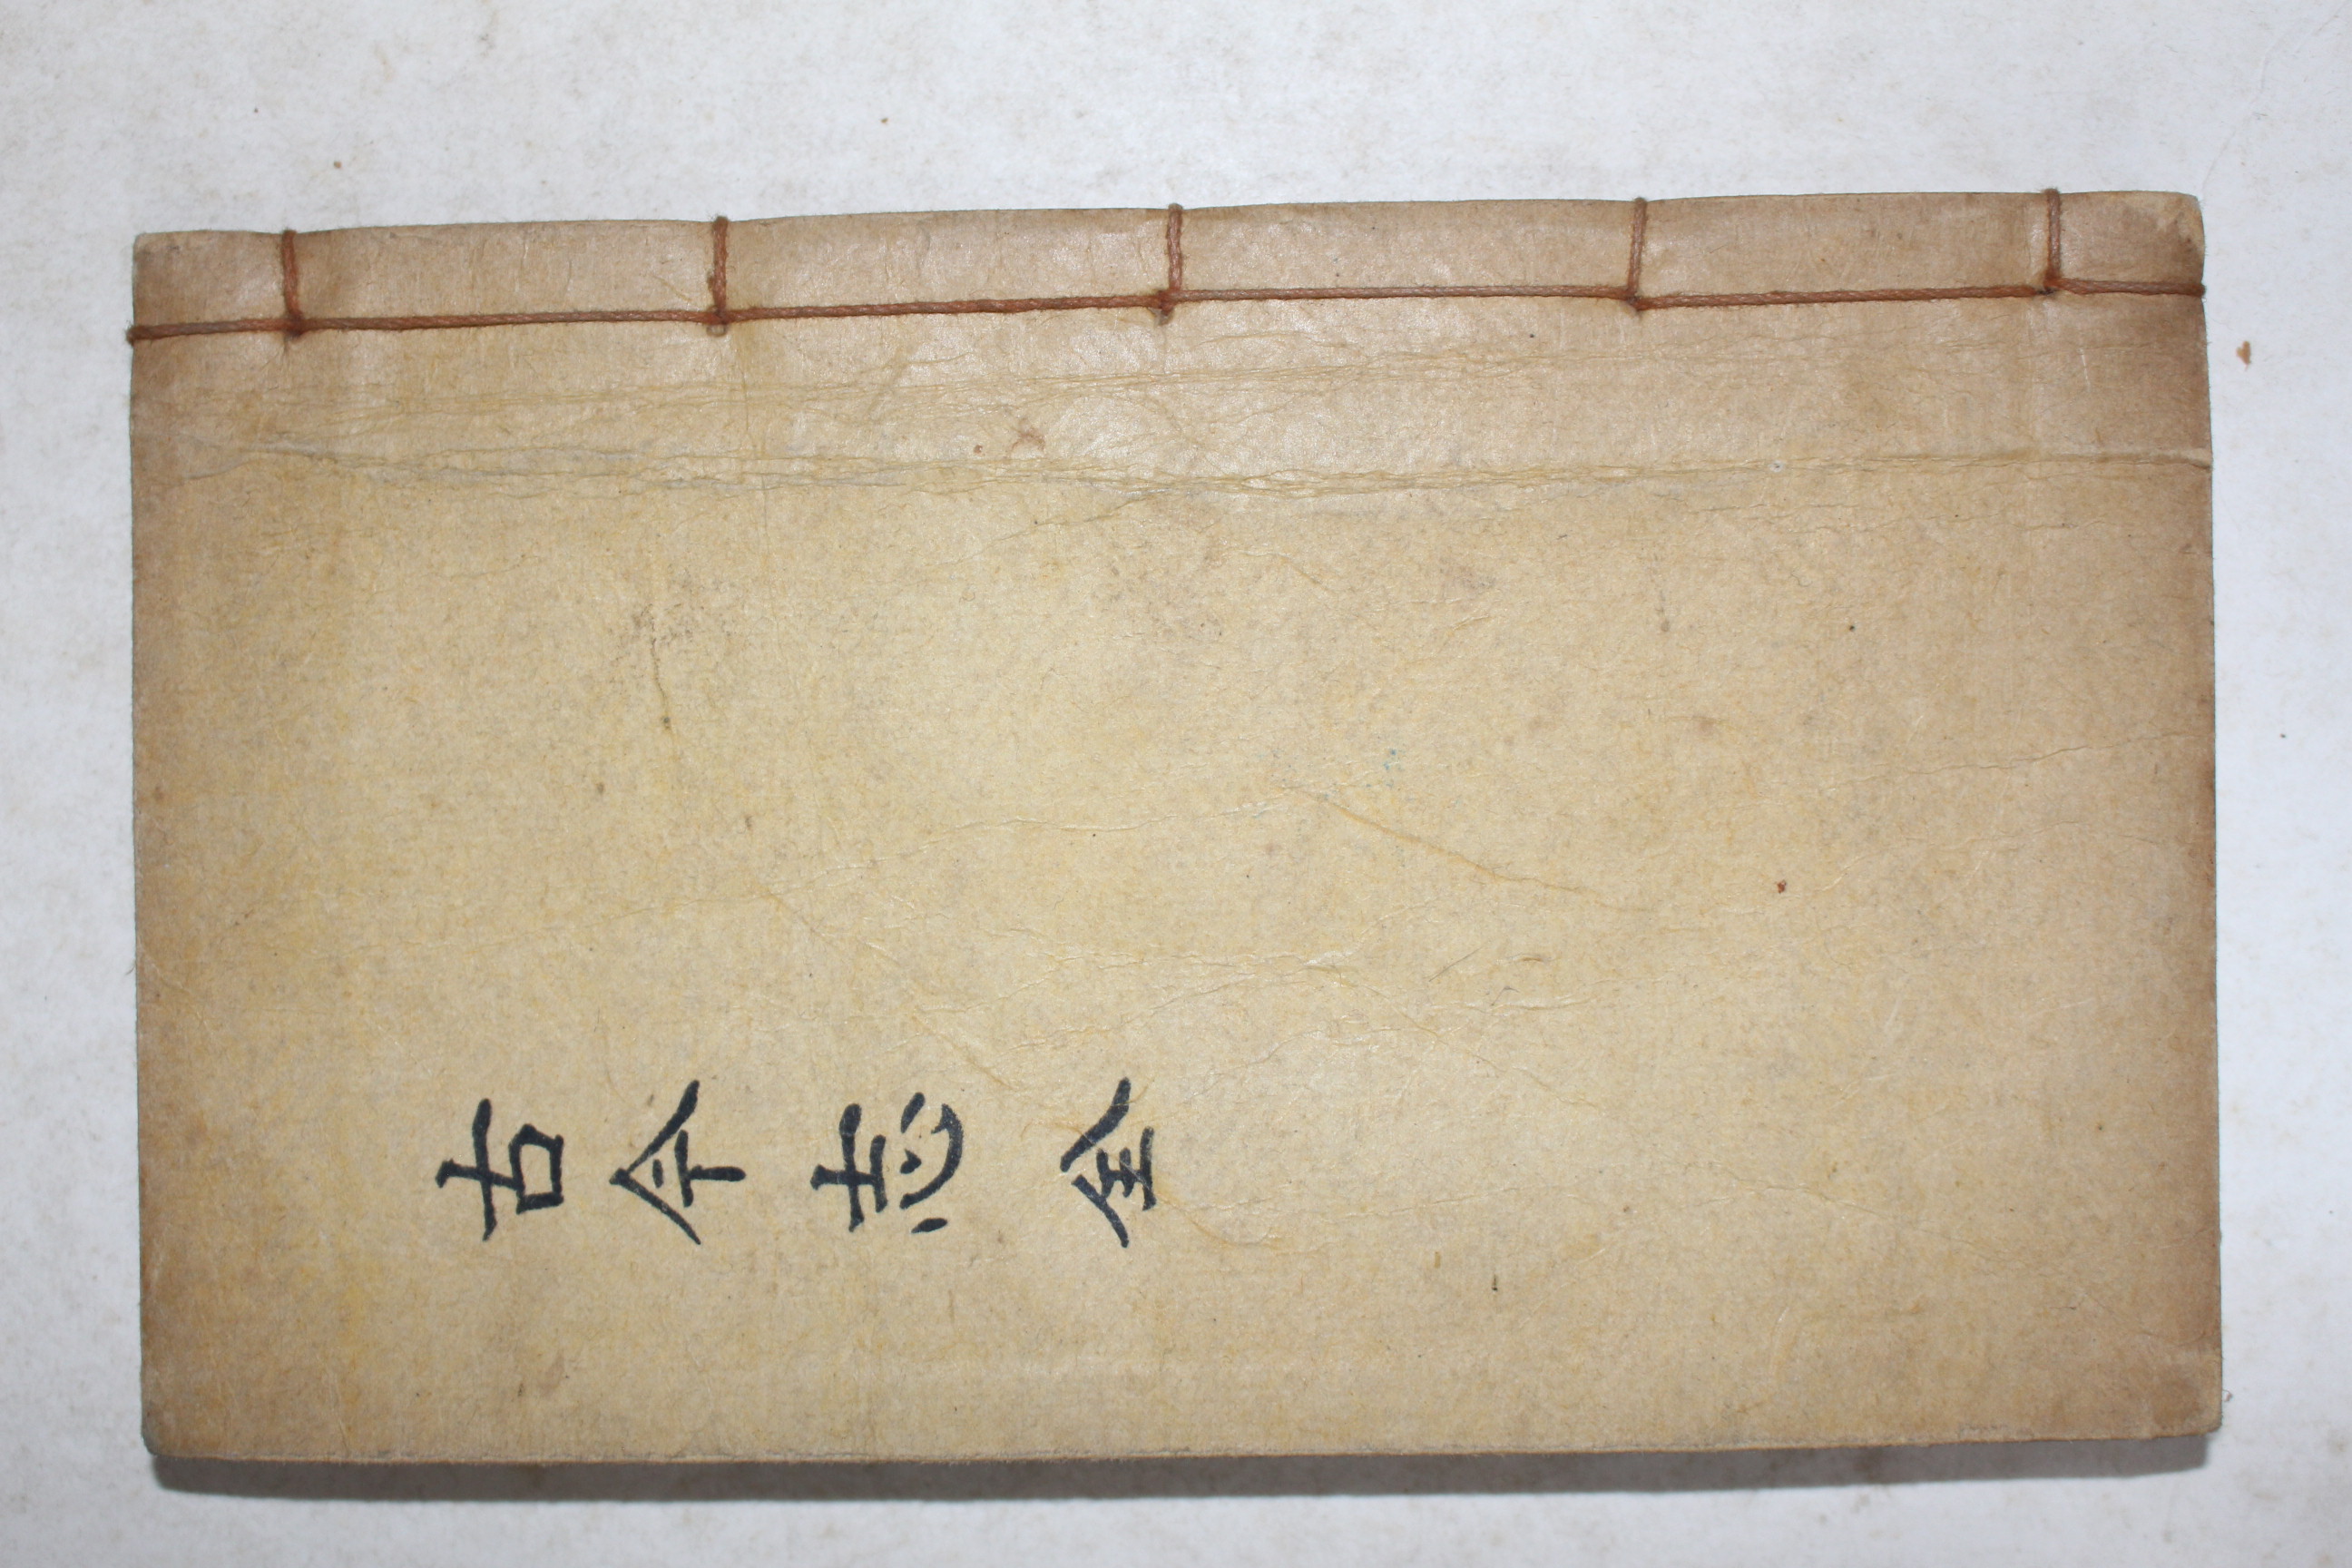 古今志 全